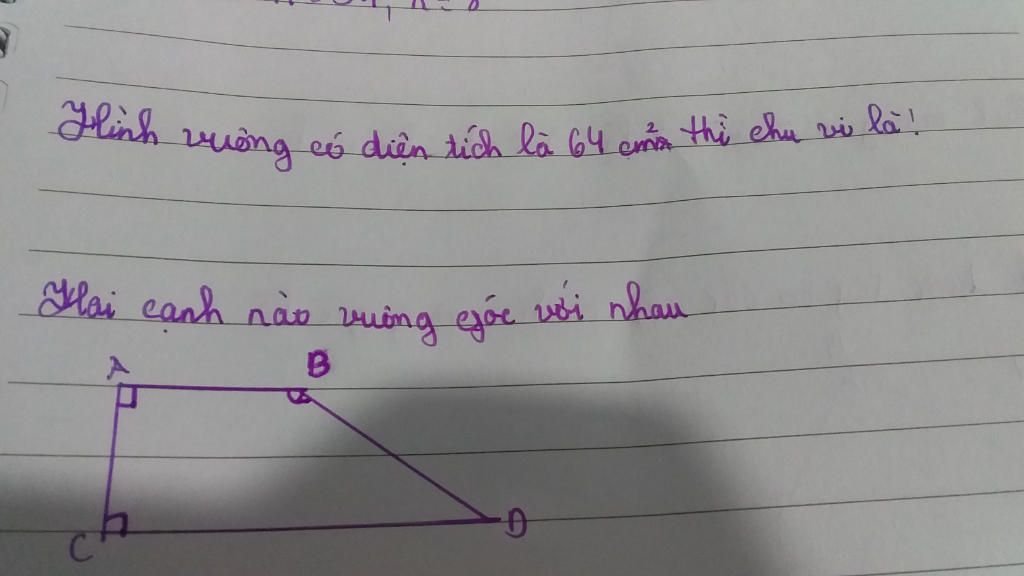 Hình vuông có diện tích là 64 cm² thì chu vi là!
Hai cạnh nào vuông góc với nhau
A
B
C
D